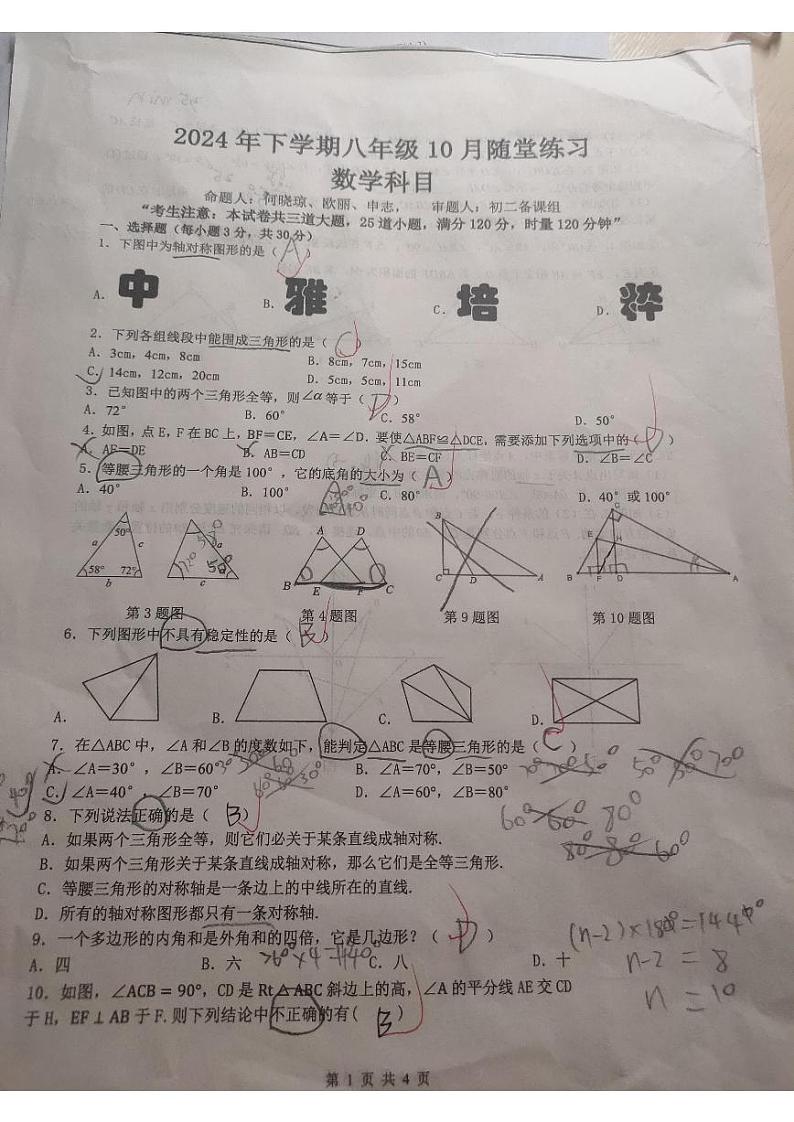 2024年下学期八年级10月随堂练习
数学科目
命题人：何晓琼、欧丽、申志， 审题人：初二备课组
“考生注意：本试卷共三道大题，25道小题，满分120分，时量120分钟”
一、选择题（每小题3分，共30分）
1. 下图中为轴对称图形的是（A）
A. 中 B. 雅 C. 培 D. 粹
2. 下列各组线段中能围成三角形的是（C）
A. 3cm，4cm，8cm B. 8cm，7cm，15cm
C. 14cm，12cm，20cm D. 5cm，5cm，11cm
3. 已知图中的两个三角形全等，则∠α等于（D）
A. 72° B. 60° C. 58° D. 50°
4. 如图，点E，F在BC上，BF=CE，∠A=∠D．要使△ABF≌△DCE，需要添加下列选项中的（D）
A. AF=DE B. AB=CD C. BE=CF D. ∠B=∠C
5. 等腰三角形的一个角是100°，它的底角的大小为（A）
A. 40° B. 100° C. 80° D. 40°或100°
50° a c 58° 72° b
58° 72° 50° a c
A D B E F C
B C D A
C E H B F D A
第3题图 第4题图 第9题图 第10题图
6. 下列图形中不具有稳定性的是（B）
A. B. C. D.
7. 在△ABC中，∠A和∠B的度数如下，能判定△ABC是等腰三角形的是（C）
A. ∠A=30°，∠B=60° B. ∠A=70°，∠B=50°
C. ∠A=40°，∠B=70° D. ∠A=60°，∠B=80°
60° 60° 80°
80° 80° 60°
8. 下列说法正确的是（B）
A. 如果两个三角形全等，则它们必关于某条直线成轴对称.
B. 如果两个三角形关于某条直线成轴对称，那么它们是全等三角形.
C. 等腰三角形的对称轴是一条边上的中线所在的直线.
D. 所有的轴对称图形都只有一条对称轴.
9. 一个多边形的内角和是外角和的四倍，它是几边形？（D）
A. 四 B. 六 C. 八 D. 十
(n-2)×180°=1440°
n-2=8
n=10
10. 如图，∠ACB=90°，CD是Rt△ABC斜边上的高，∠A的平分线AE交CD
于H，EF⊥AB于F.则下列结论中不正确的有(B)
第 1 页 共 4 页